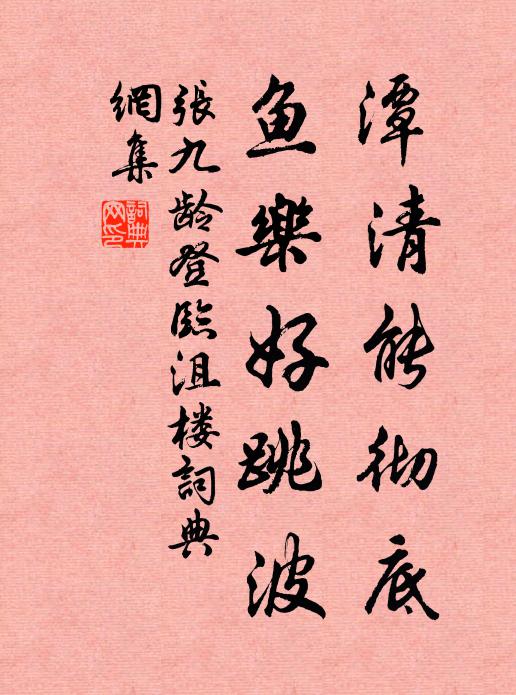 潭清能彻底
鱼樂好跳波
張九龄登臨沮楼詞典
網集
詞典
网印